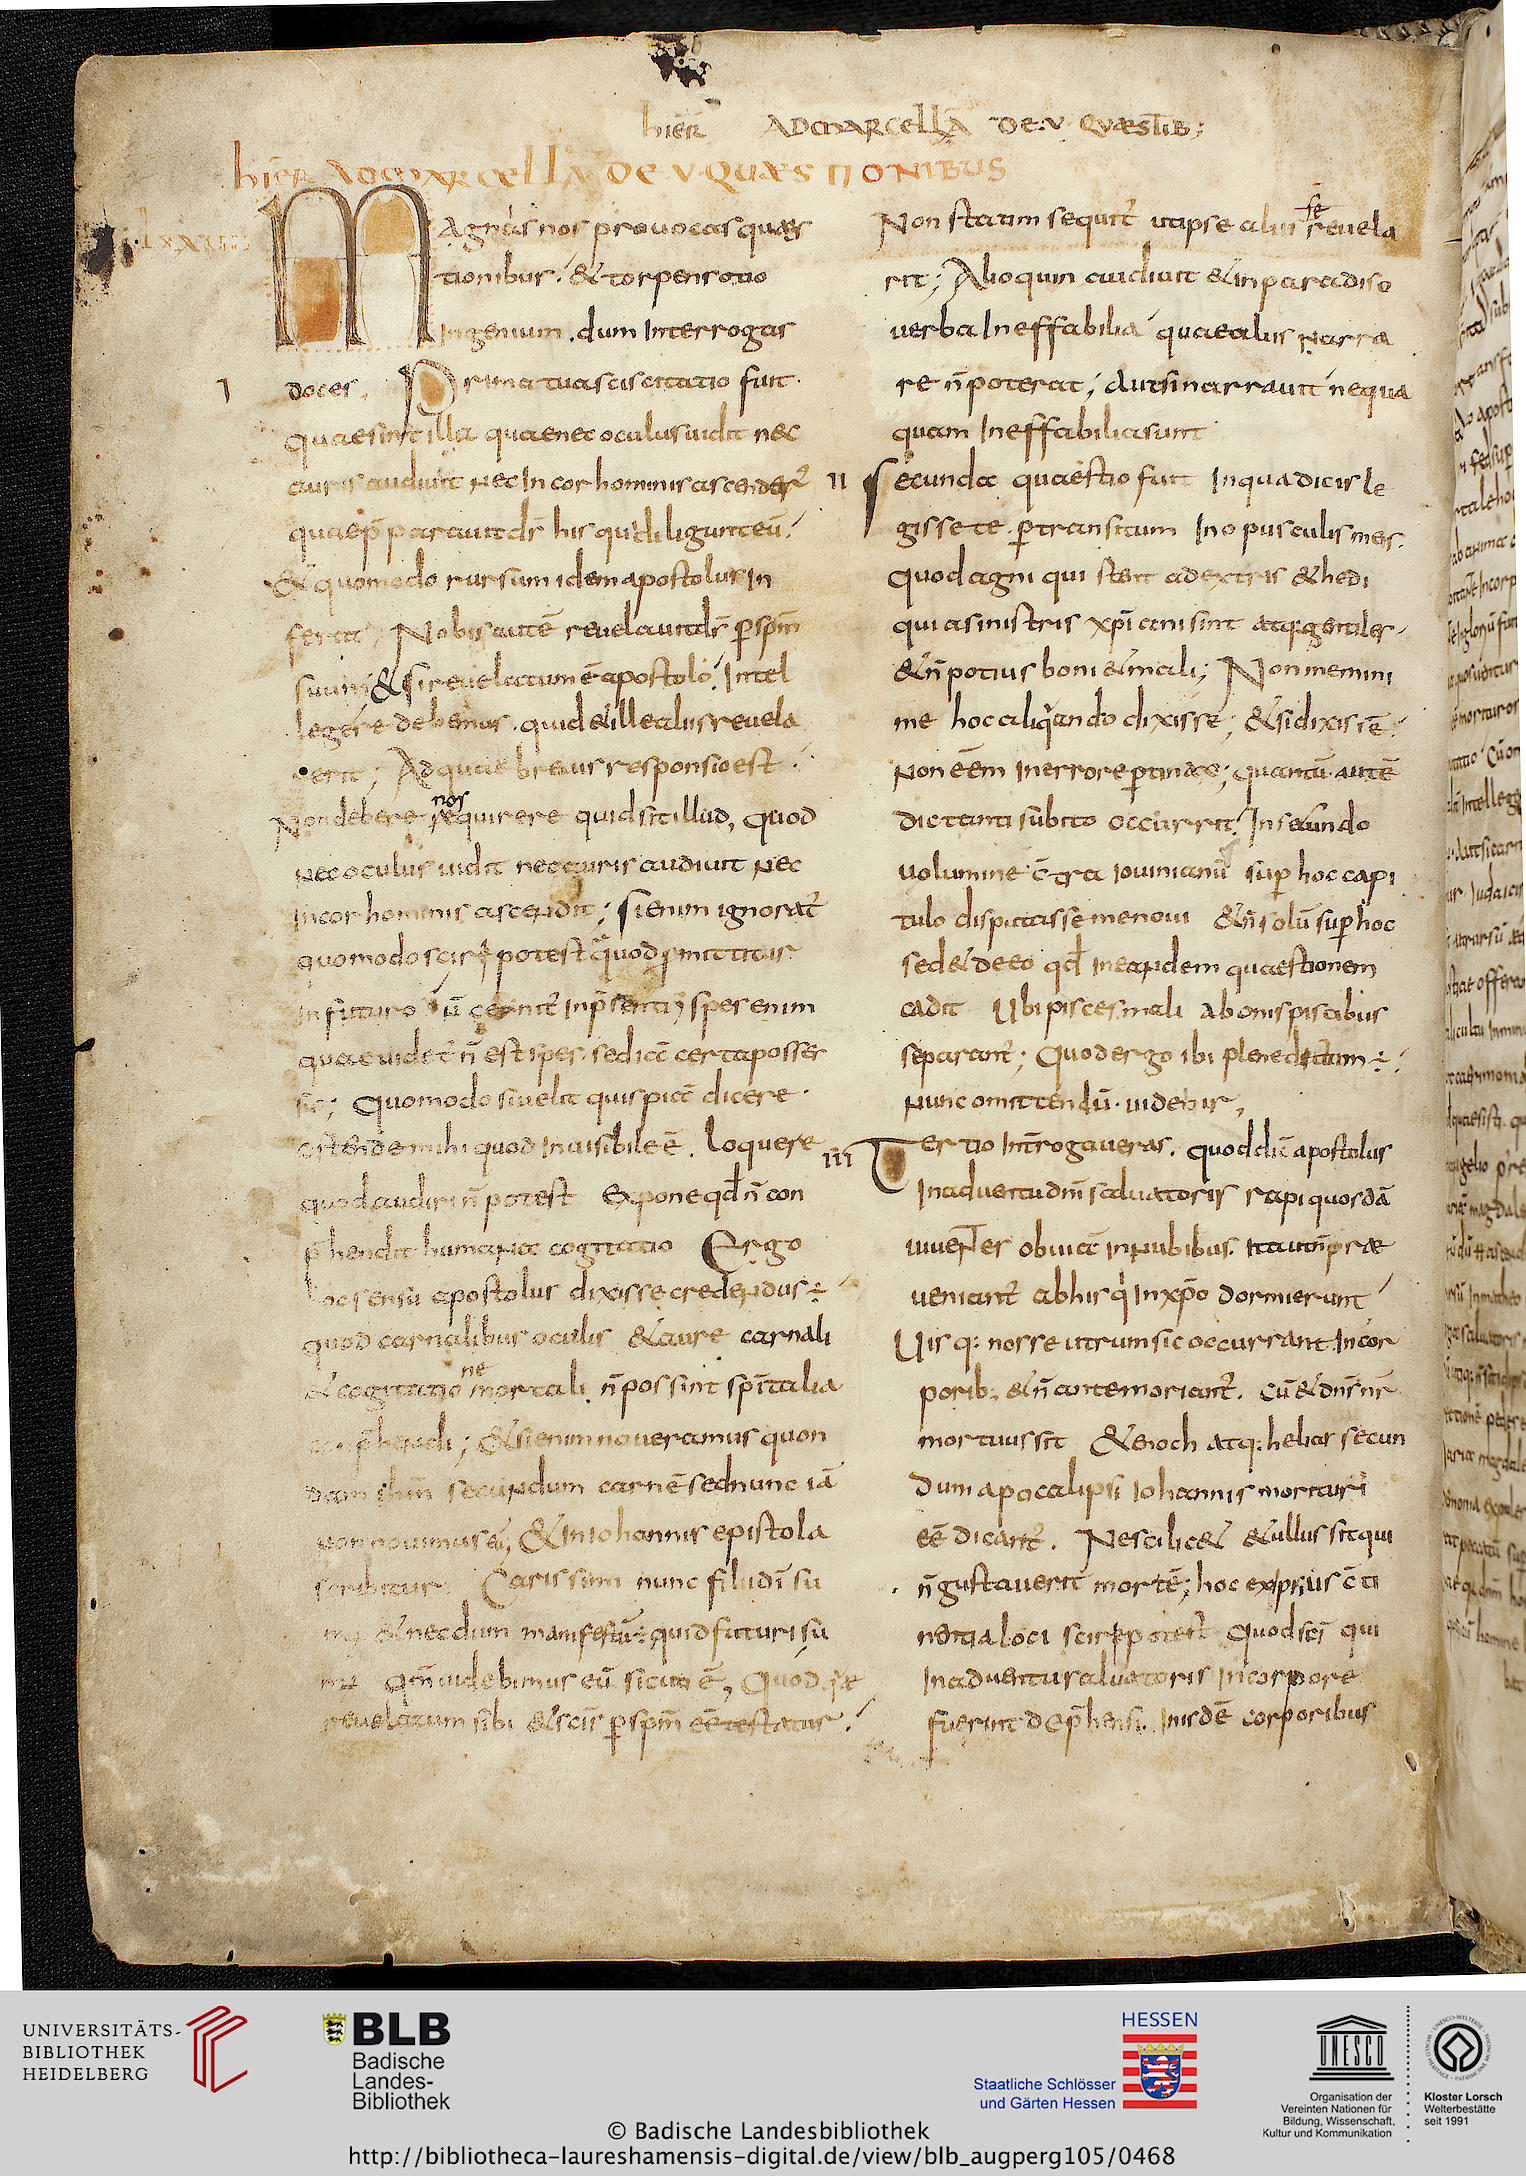 hier̄ ADMARCELLĀ DE·V· QVÆSTIB;
hier̄ ADMARCELLĀ DE V·QUÆSTIONIBUS
LXXIIII
Magnis nos provocas quæs
tionibus. & torpens otio
Ingenium. dum Interrogas
I doces. Prima tua sciscitatio fuit.
quae sint illa quae nec oculus uidit nec
auris audiuit nec In cor hominis ascender̄
quae p̄parauit dš his qui diligunt eū.
& quomodo rursum idem apostolus in
ferat, Nobis autē reuelauit dš ꝑ spm̄
suum & si reuelatum ē apostolo. Intel
legere debemus. quid & ille aliis reuela
uerit; Ad quae breuis responsio est.
Non debere nos requirere quid sit illud, quod
nec oculus uidit nec auris audiuit nec
In cor hominis ascendit; si enim ignorat̄
quomodo sciri potest quod ꝓmittitur
in futuro ū cernit̄ in p̄senti, spes enim
quae uidet̄ n̄ est spes. sed iā certa posses
sio; Quomodo si uelit quispiā dicere.
ostende mihi quod Inuisibile ē. loquere
quod audiri n̄ potest Expone qđ n̄ con
p̄hendit humana cogitatio Ergo
hoc sensu apostolus dixisse credendus ÷
quod carnalibus oculis & aure carnali
& cogitatione mortali n̄ possint spītalia
conp̄hendi; & si enim noueramus quon
dam ihm̄ secundum carnē sed nunc iā
non nouimus eū, & in iohannis epistola
scribitur. Carissimi nunc filii dī su
mus & necdum manifestū ÷ quid futuri su
mus qm̄ uidebimus eū sicuti ē, Quod q̄
reuelatum sibi & scīs ꝑ spm̄ eē testatur.
Non statim sequit̄ ut ipse alii se reuela
rit; Alioquin audiuit & in paradiso
verba Ineffabilia quae aliis narra
re n̄ poterat; Aut si narrauit nequa
quam Ineffabilia sunt
II Secunda quaestio fuit In qua dicis le
gisse te ꝑtransitum In opusculis meis.
Quod agni qui stant a dextris & hedi
qui a sinistris xp̄iani sint atq; gentiles.
& n̄ potius boni & mali; Non memini
me hoc aliquando dixisse; & si dixissē
Non eēm In errore ꝑtinax; quantū autē
dictanti subito occurrit. In secundo
uolumine c̄tra iouinianū suꝑ hoc capi
tulo disputasse me noui & n̄ solū suꝑ hoc
sed & de eo qđ In eandem quaestionem
cadit Ubi pisces mali a bonis piscibus
separant̄; Quod ergo ibi plene dictum ÷;
Nunc omittendū. uidebis,
III Tertio Int̄rogaveras. quod dic̄ apostolus
In aduentu dnī saluatoris rapi quosdā
iuuentes obuiā In nubibus. ita ut n̄ præ
veniant̄ ab his q̄ In xp̄o dormierunt
Uis q; nosse utrum sic occurrant. In cor
porib; & n̄ ante moriant̄. cū & dns̄ nr̄
mortuus sit & enoch atq; helias secun
dum apocalipsi iohannis morituri
eē dicant̄. Ne scilic& & ullus sit qui
n̄ gustauerit mortē; hoc ex ipsius c̄ti
nentia loci sciri poterit Quod scī qui
In aduentu saluatoris In corpore
fuerint dep̄hensi. In isdē corporibus
UNIVERSITÄTS-
BIBLIOTHEK
HEIDELBERG
BLB
Badische
Landes-
Bibliothek
HESSEN
Staatliche Schlösser
und Gärten Hessen
UNESCO
Organisation der
Vereinten Nationen für
Bildung, Wissenschaft,
Kultur und Kommunikation
Kloster Lorsch
Welterbestätte
seit 1991
© Badische Landesbibliothek
http://bibliotheca-laureshamensis-digital.de/view/blb_augperg105/0468